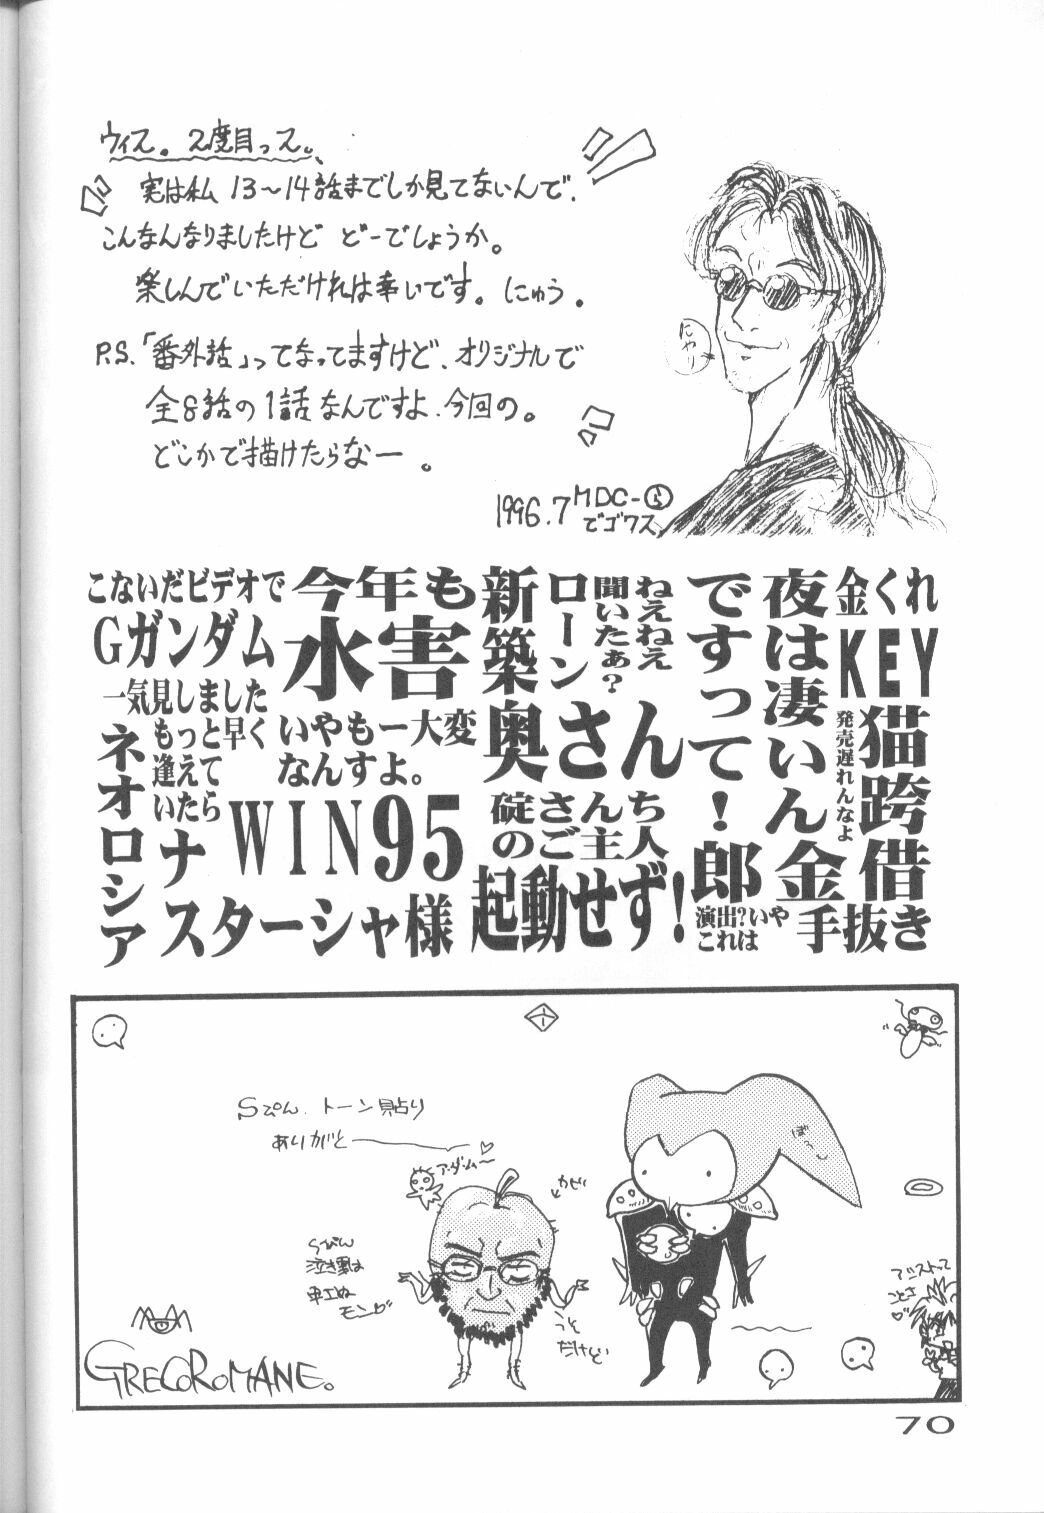 ウィス。2度目っス。
実は私13〜14話までしか見てないんで、
こんなんなりましたけど どーでしょうか。
楽しんでいただければ幸いです。にゅう。
P.S.「番外話」ってなってますけど、オリジナルで
全8話の1話なんですよ、今回の。
どこかで描けたらなー。
1996.7 MDC-
でゴワス
にやり
こないだビデオで
Gガンダム
一気見しました
もっと早く
逢えて
いたら
ネオロシア
ナスターシャ様
今年も
水害
いやもー大変
なんすよ。
WIN95
起動せず!
ねえねえ
聞いたぁ?
新築
ローン
奥さん
碇さんち
のご主人
夜は凄いん
ですって!
金くれ
KEY
発売遅れんなよ
猫跨借金郎
演出?いや
これは
手抜き
Sぴん、トーン貼り
ありがと
アダム〜
Sぴん
泣き虫は
モンガ
うそ
だけど
アシストって
ことさ
GRECOROMANE。
70